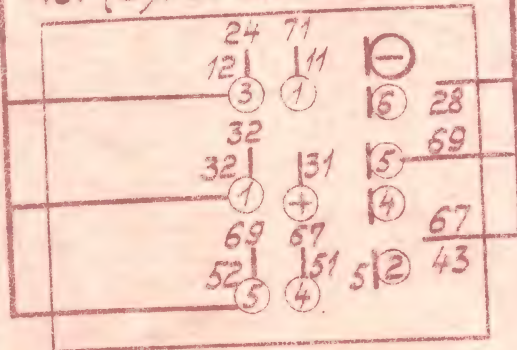 24 71
12 11 −
3 1 6 28
32 69
32 31 5
1 + 4
69 67 67
52 51 5 2 43
5 4